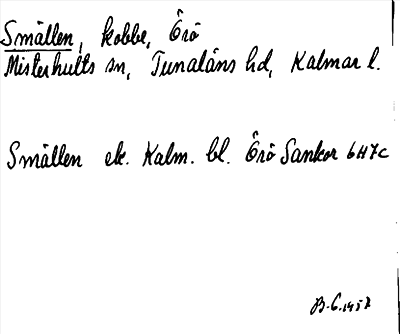 Smällen, kobbe, Örö
Misterhults sn, Tunaläns hd, Kalmar l.
Smällen ek. Kalm. bl. Örö Sankor 6H7c